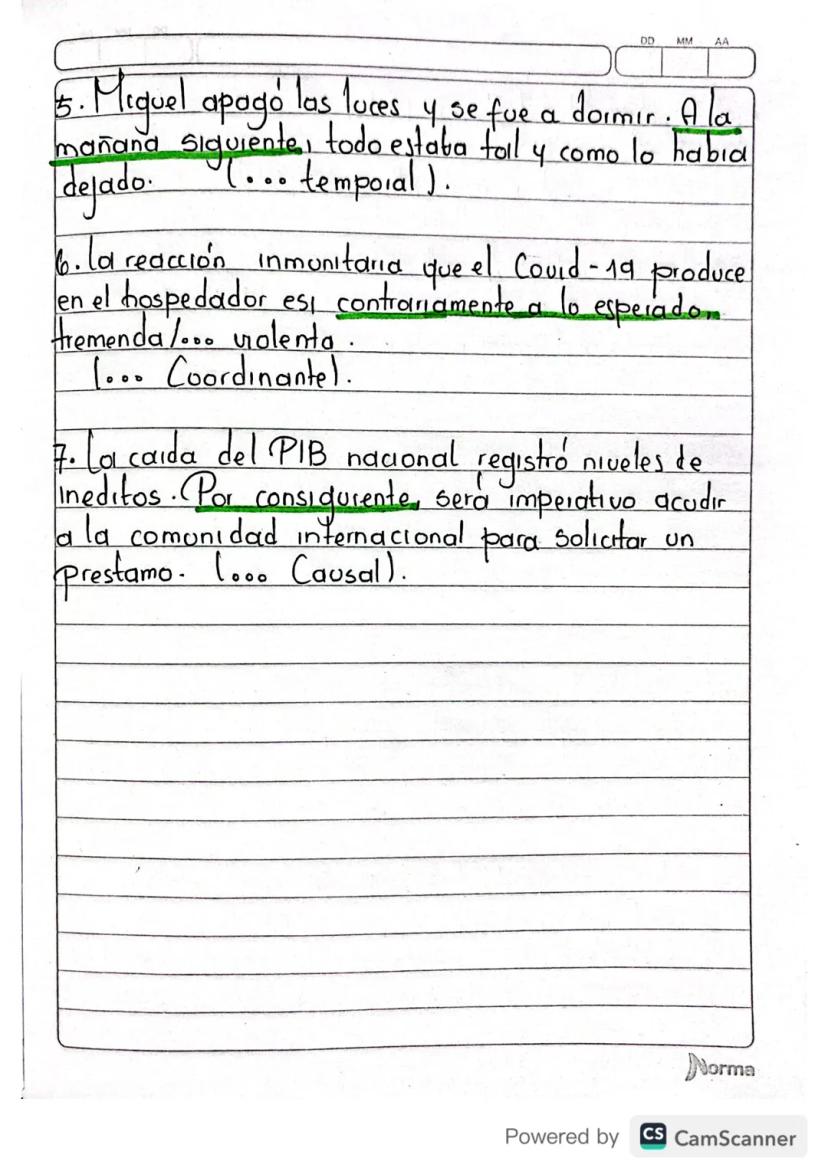 DD MM AA
5. Miguel apagó las luces y se fue a dormir. A la
mañana siguiente, todo estaba tal y como lo había
dejado. (... temporal).
6. La reacción inmunitaria que el Covid-19 produce
en el hospedador es, contrariamente a lo esperado,
tremenda/... violenta.
(... Coordinante).
7. La caida del PIB nacional registró niveles de
ineditos. Por consiguiente, será imperativo acudir
a la comunidad internacional para solicitar un
prestamo. (... Causal).
Norma
Powered by CS CamScanner